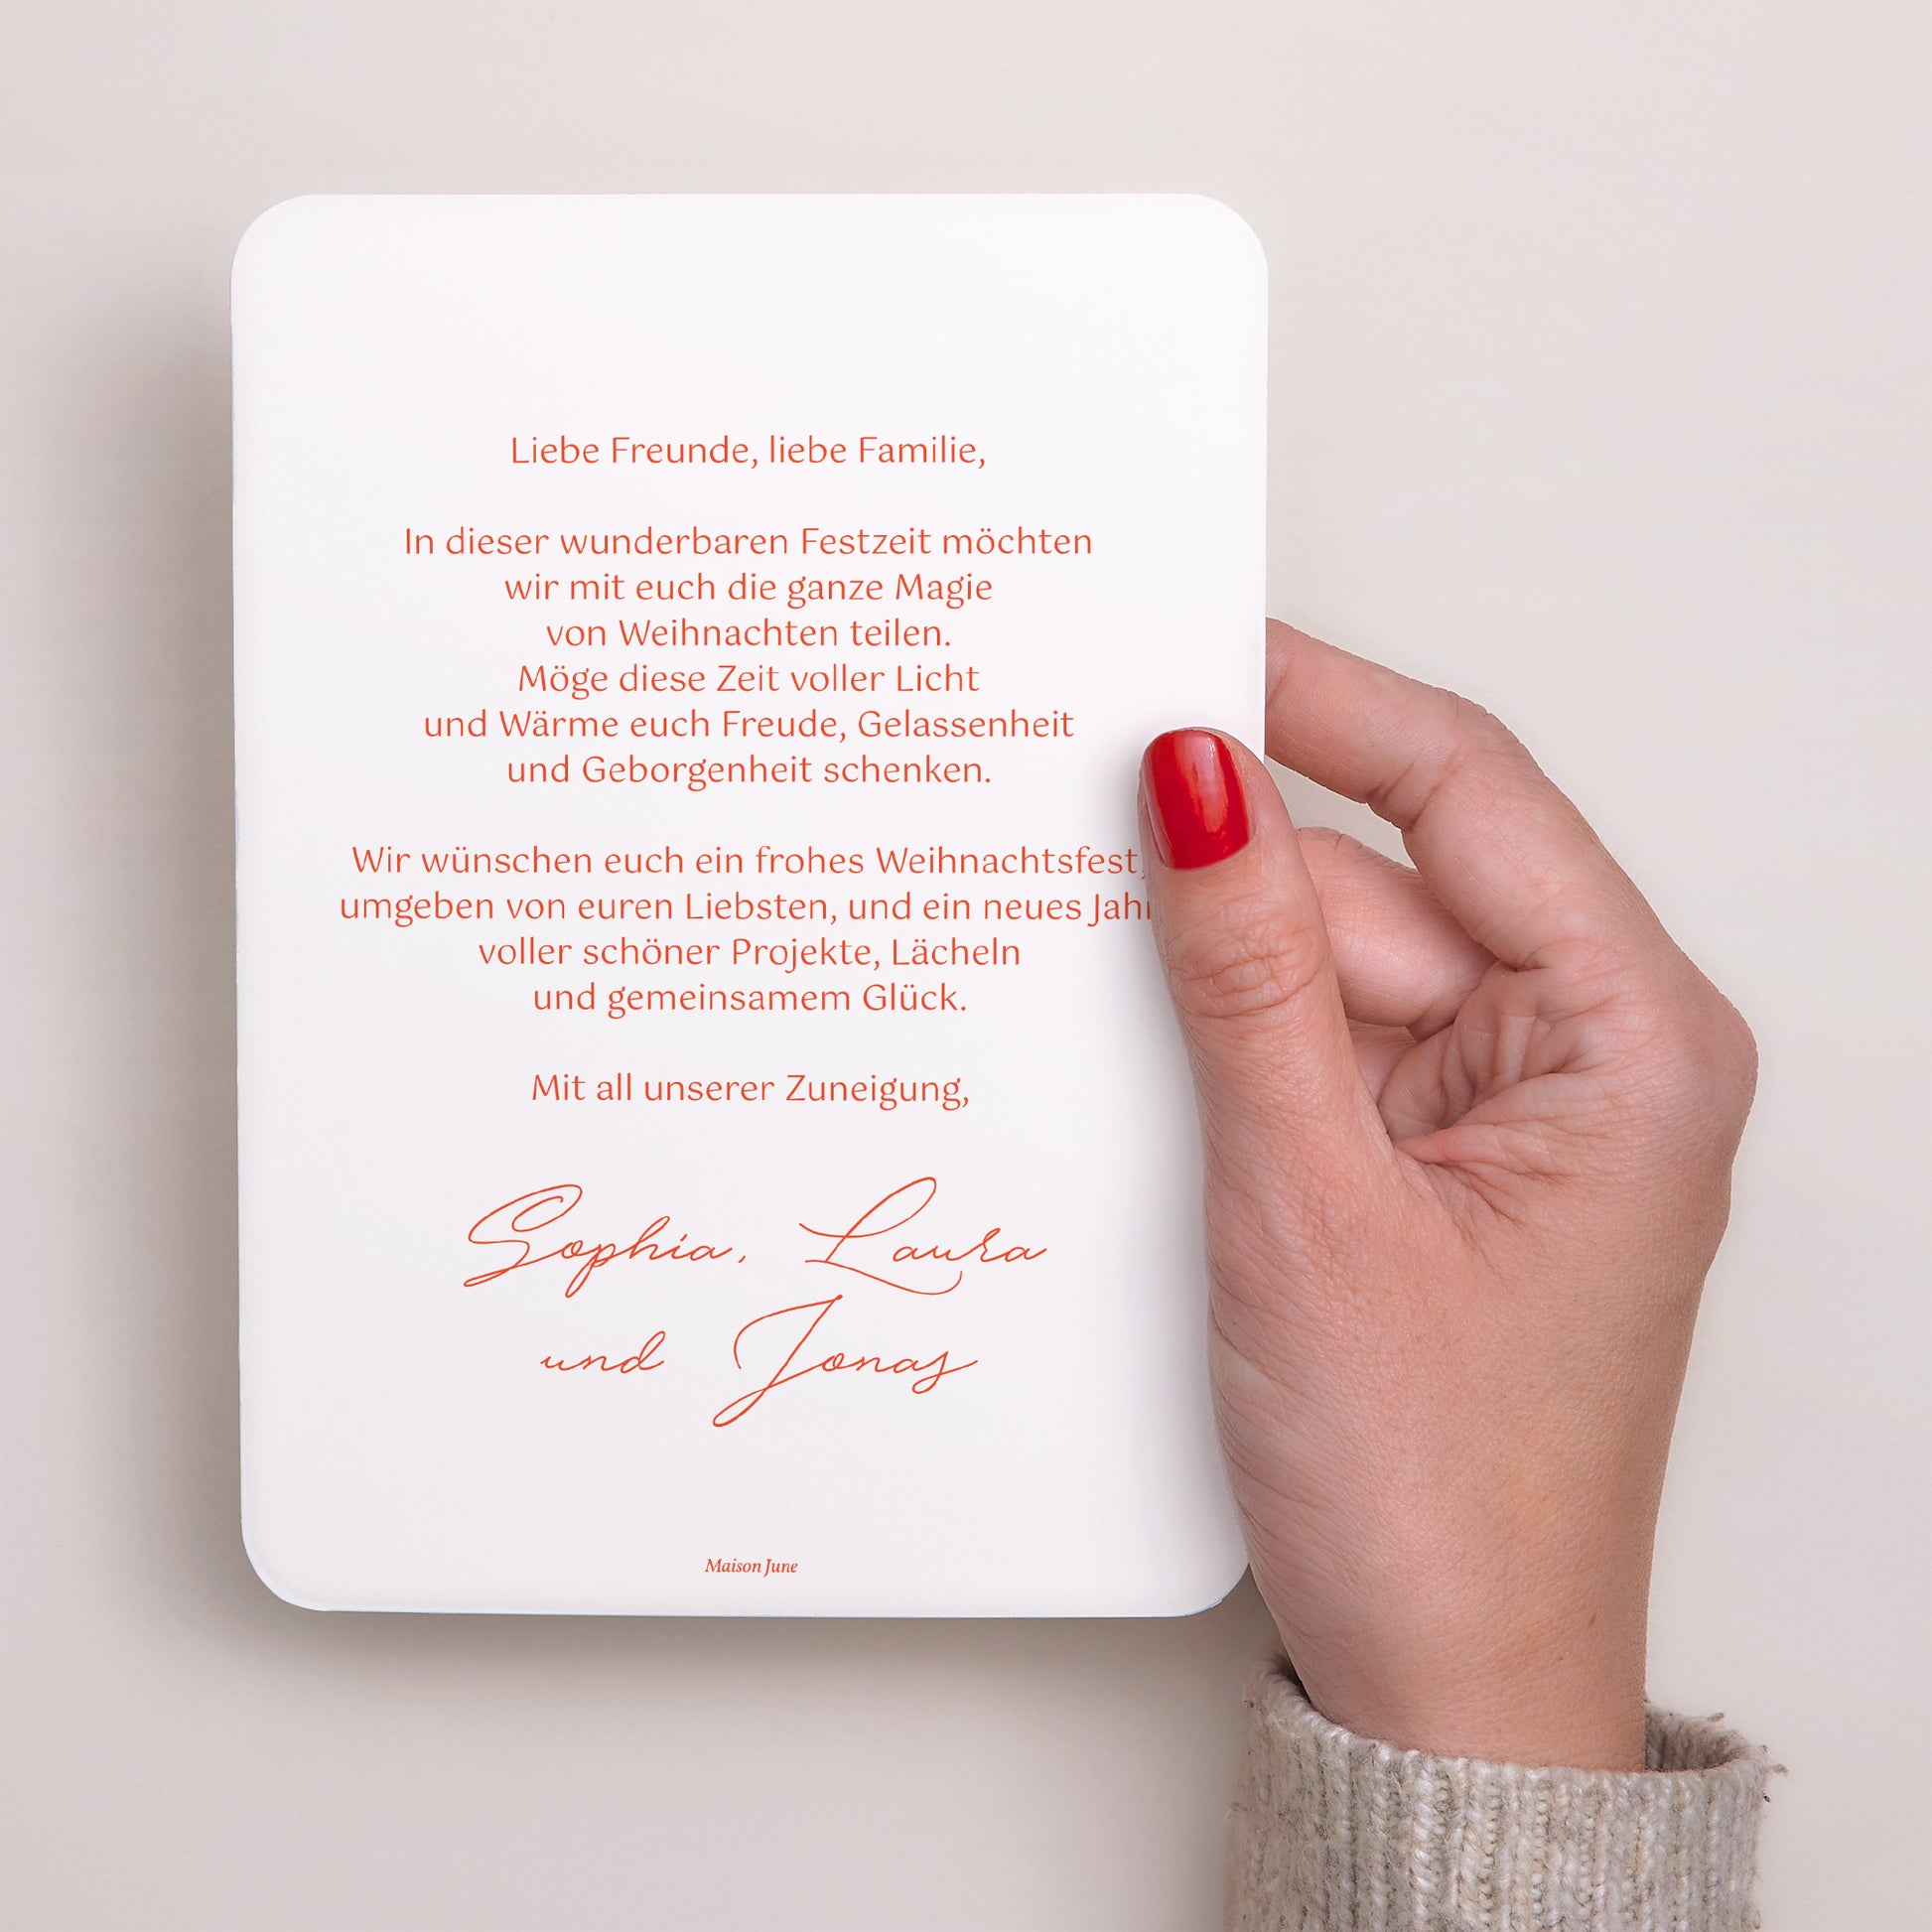 Liebe Freunde, liebe Familie,
In dieser wunderbaren Festzeit möchten
wir mit euch die ganze Magie
von Weihnachten teilen.
Möge diese Zeit voller Licht
und Wärme euch Freude, Gelassenheit
und Geborgenheit schenken.
Wir wünschen euch ein frohes Weihnachtsfest,
umgeben von euren Liebsten, und ein neues Jahr
voller schöner Projekte, Lächeln
und gemeinsamem Glück.
Mit all unserer Zuneigung,
Sophia, Laura
und Jonas
Maison June